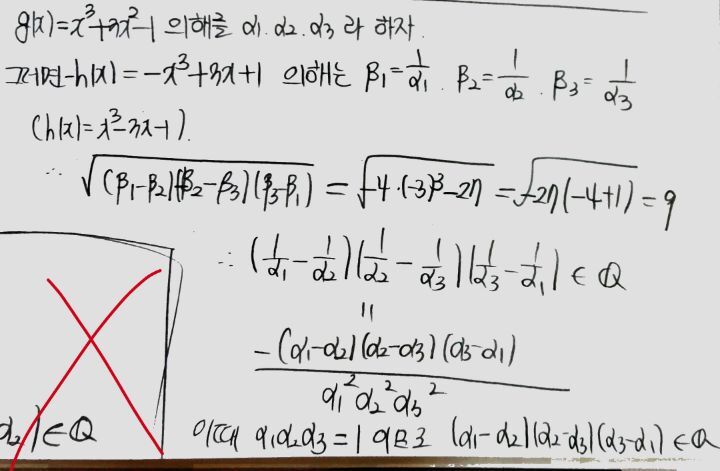 g(x)=x³+3x²-1 의해를 α₁. α₂. α₃ 라 하자.
그러면 -h(x)=-x³+3x+1 의해는 β₁=1/α₁. β₂=1/α₂. β₃=1/α₃
(h(x)=x³-3x-1).
∴ √((β₁-β₂)(β₂-β₃)(β₃-β₁)) = √(-4·(-3)³-27) = √(-27(-4+1)) = 9
∴ (1/α₁-1/α₂)(1/α₂-1/α₃)(1/α₃-1/α₁) ∈ Q
=
-(α₁-α₂)(α₂-α₃)(α₃-α₁) / α₁²α₂²α₃²
α₂) ∈ Q
이때 α₁α₂α₃=1 이므로 (α₁-α₂)(α₂-α₃)(α₃-α₁) ∈ Q